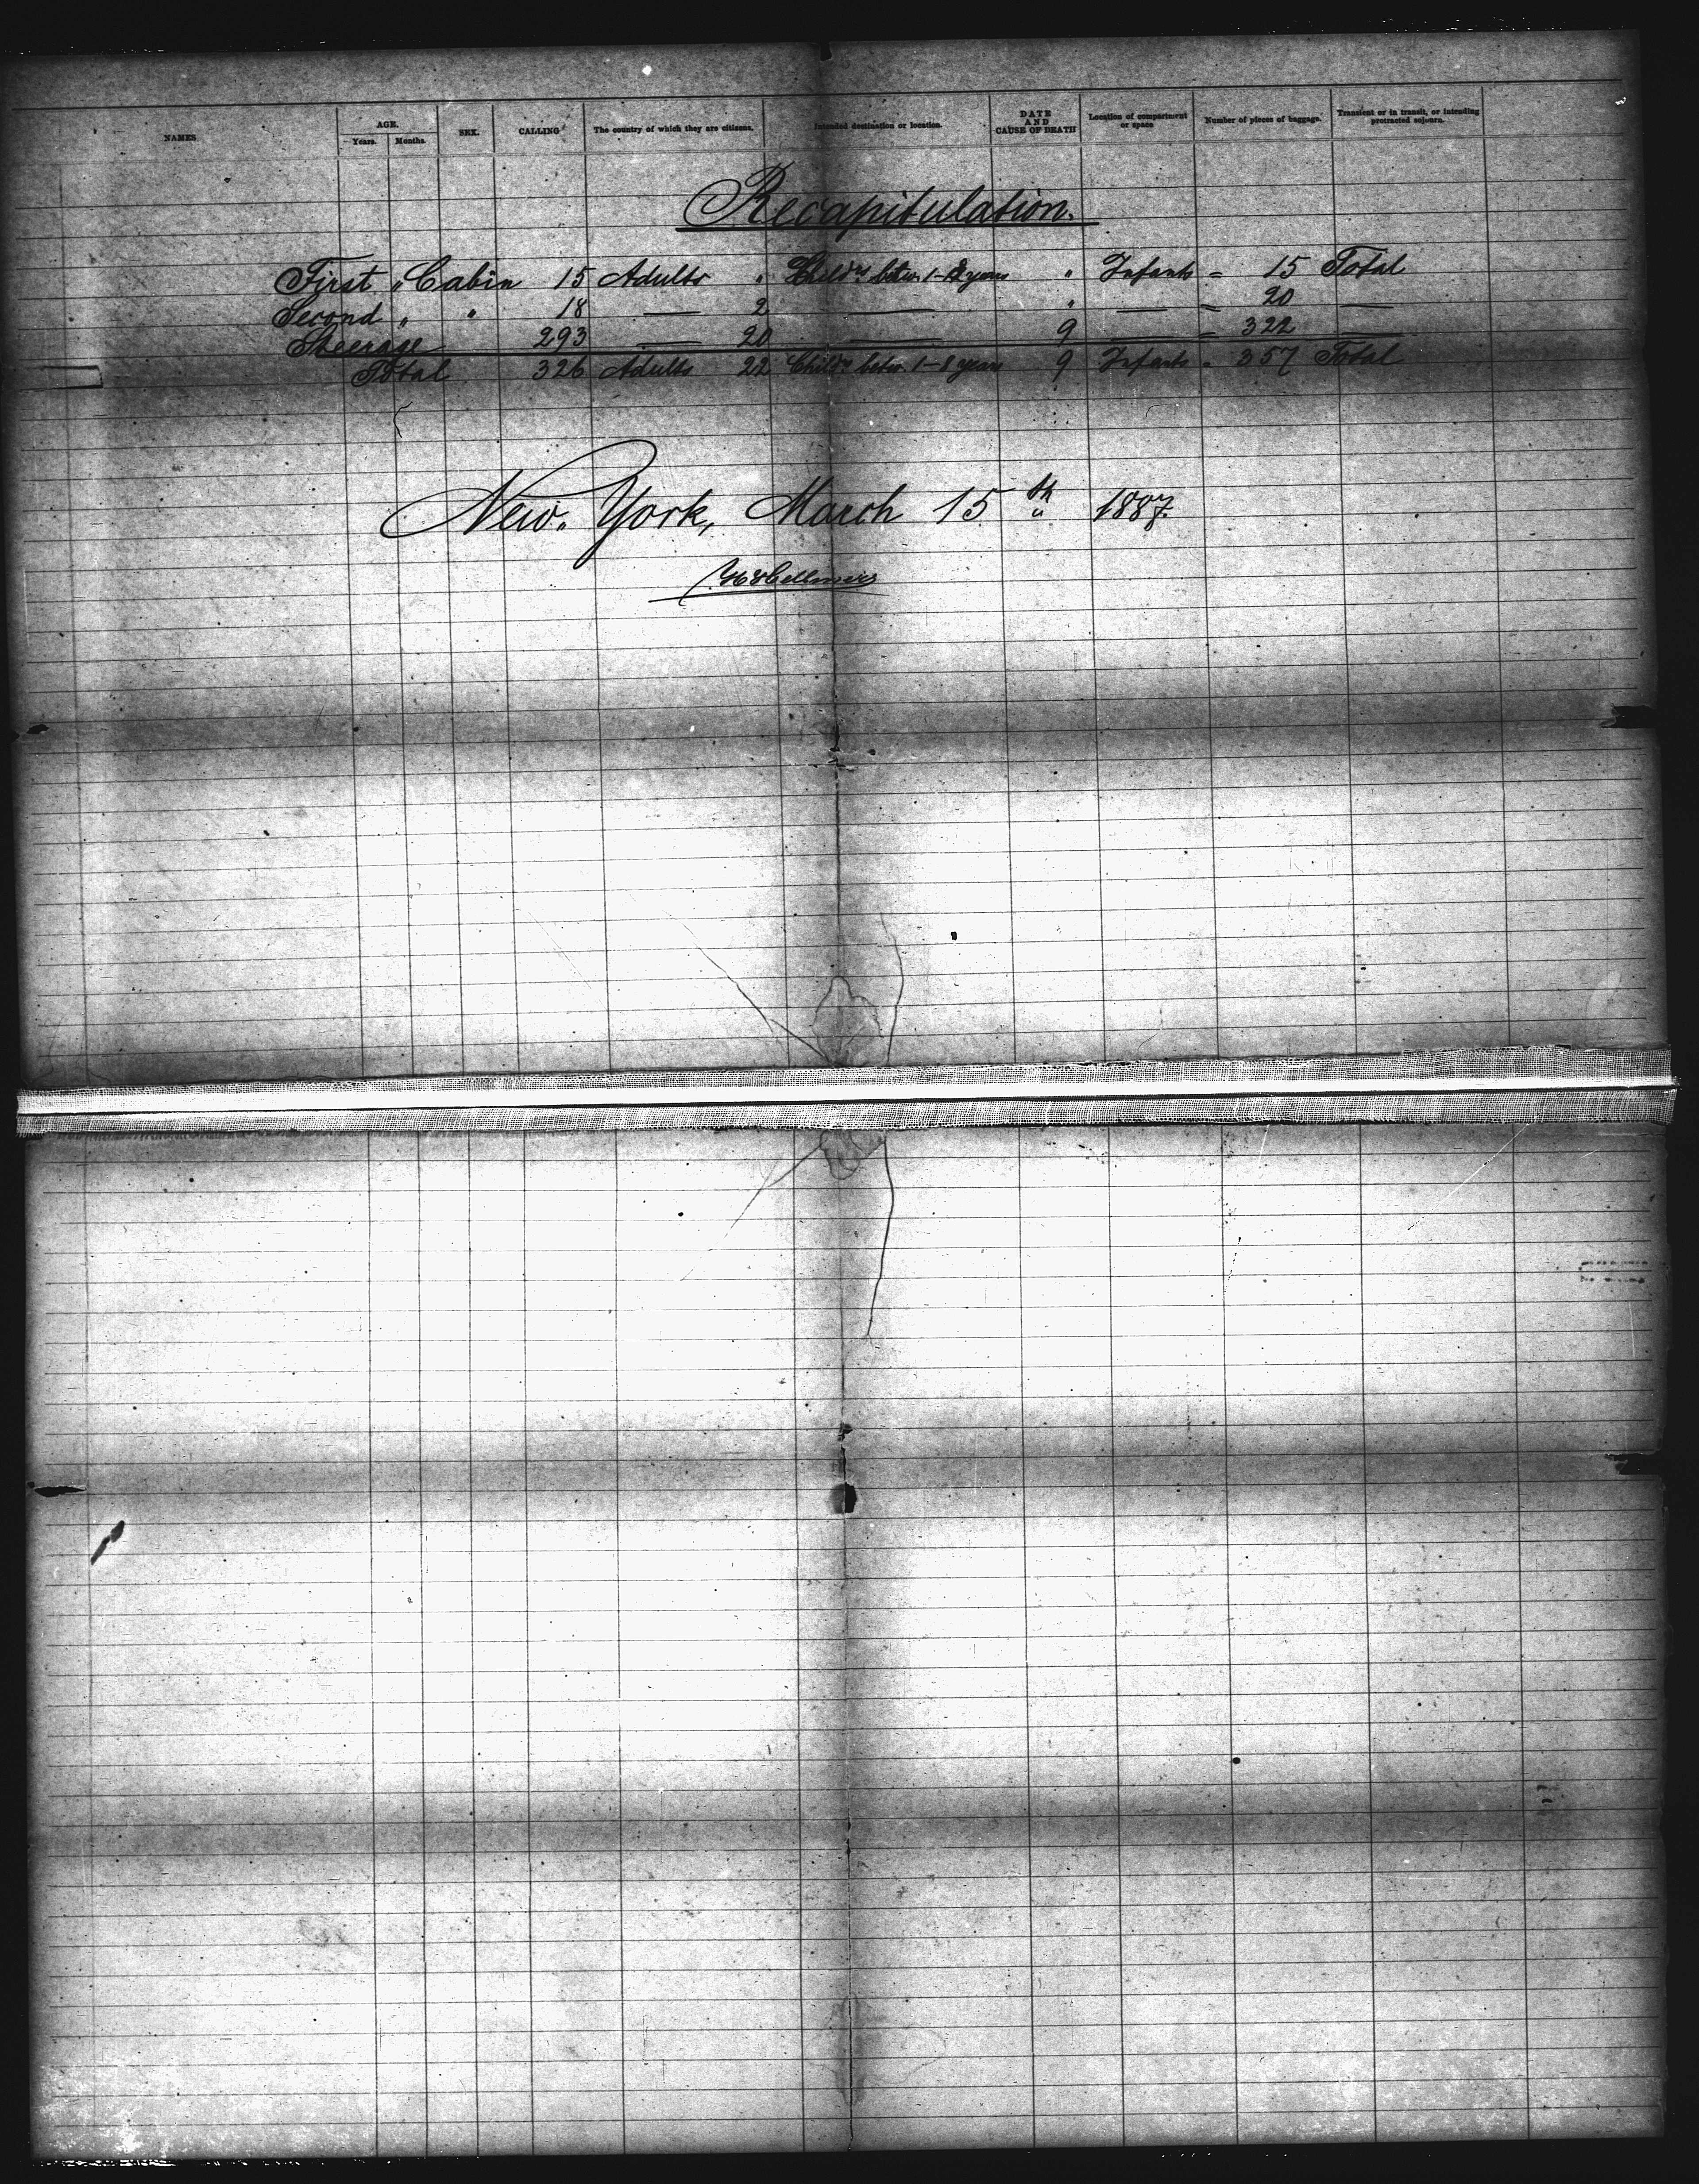 NAMES AGE. Years. Months. SEX. CALLING The country of which they are citizens. Intended destination or location. DATE AND CAUSE OF DEATH Location of compartment or space Number of pieces of baggage. Transient or in transit, or intending protracted sojourn.
Recapitulation.
First " Cabin 15 Adults " Child's betw. 1-8 years " Infants = 15 Total
Second " " 18 — 2 — " — = 20 —
Steerage 293 — 20 — 9 — = 322 —
Total 326 Adults 22 Child's betw. 1-8 years 9 Infants = 357 Total
New York, March 15th 1887.